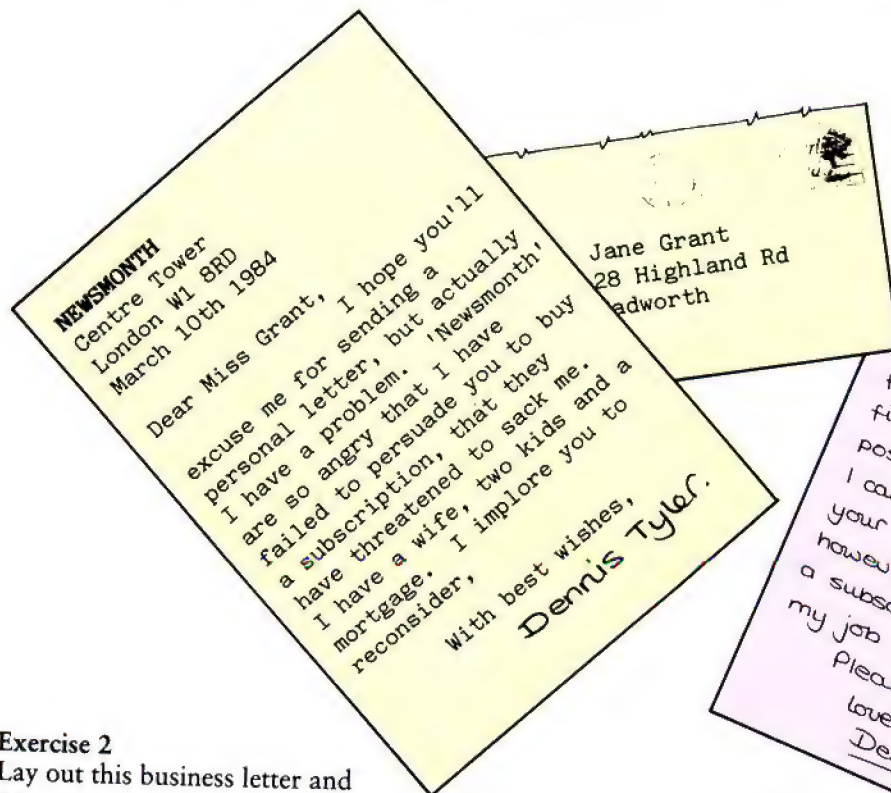 NEWSMONTH
Centre Tower
London W1 8RD
March 10th 1984
Dear Miss Grant,
I hope you'll
excuse me for sending a
personal letter, but actually
I have a problem. 'Newsmonth'
are so angry that I have
failed to persuade you to buy
a subscription, that they
have threatened to sack me.
I have a wife, two kids and a
mortgage. I implore you to
reconsider,
With best wishes,
Dennis Tyler.
Jane Grant
28 Highland Rd
adworth
I ca
your
howev
a subsc
my job
Pleas
love
De
Exercise 2
Lay out this business letter and